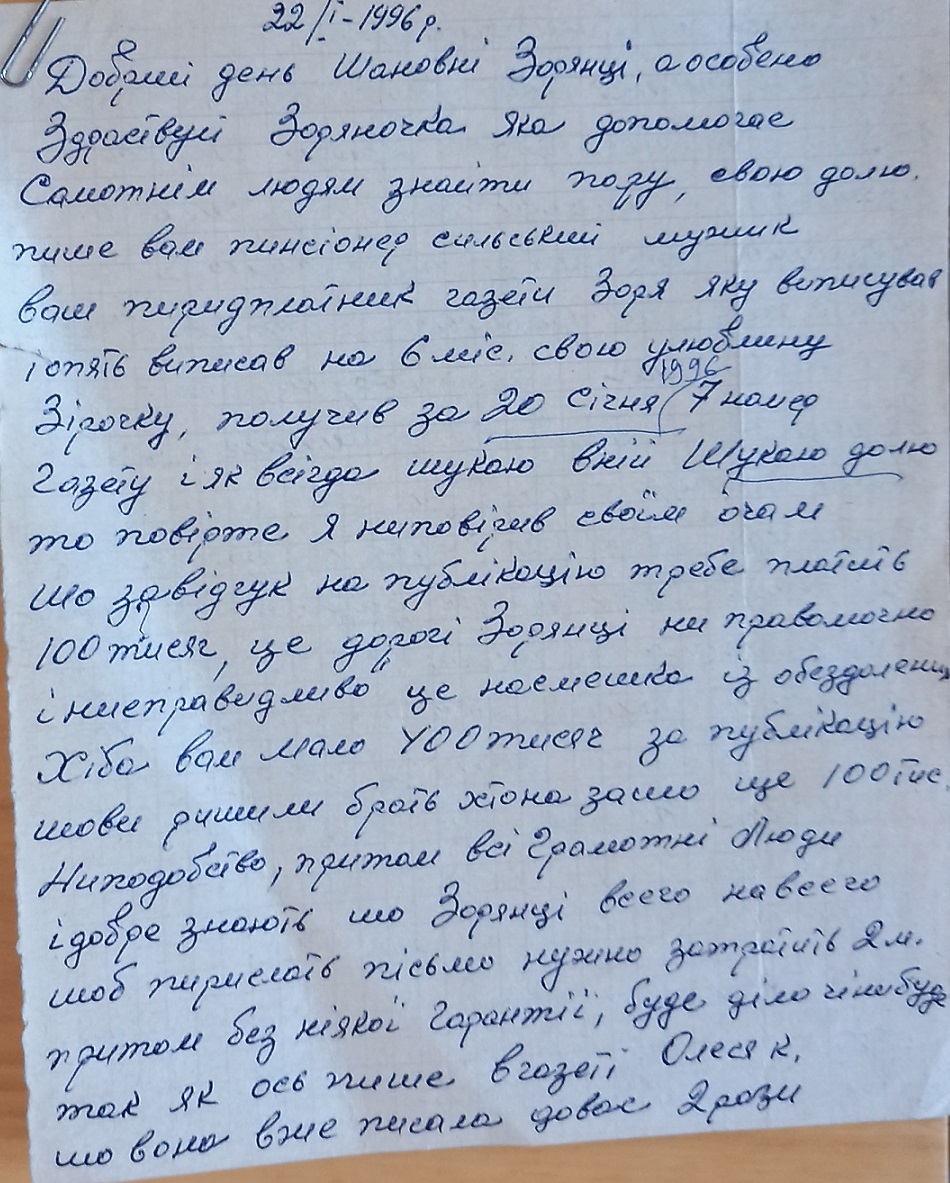 22/I-1996р.
Добрий день Шановні Зорянці, а особено
Здраствуй Зоряночка яка допомогає
Самотнім людям знайти пару, свою долю.
пише вам пинсіонер сильський мужик
ваш пиридплатник газети Зоря яку виписував
і опять виписав на 6 міс. свою улюблину
1996
Зірочку, получив за 20 січня (7 номер
Газету і як всігда шукаю вній Шукаю долю
то повірте я ниповірив своїм очам
що за відгук на публікацію треба платить
100 тисяч, це дорогі Зорянці ни правомочно
і ниеправидливо це насмешка із обездолених
Хіба вам мало 400 тисяч за публікацію
шови ришили брать хтозна зашо ще 100 тис
Ниподобство, притом всі Грамотні Люди
і добре знають шо Зорянці всего навсего
шоб пирислать пісьмо нужно затратить 2 м.
притом без ніякої Гарантії, буде діло чи нибуде
так як ось пише вгазеті Олеся К.
шо вона вже писала довас 2 рази